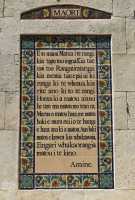 MAORI
E to matou Matua i te rangi
kia tapu tou ingoa. Kia tae
mai tou Rangatiratanga
kia meatia tau e pai ai ki
runga ki te whenua, kia
rite ano ki to te rangi.
Homai ki a matou
matou mo tenei ra.
Murua o matou hara, me matou
hoki e muru nei i o te hunga
e hara ana ki a matou. Aua hoki
matou e kawea kia whakawaia,
Engari whakaorangia
matou i te kino.
Amine.